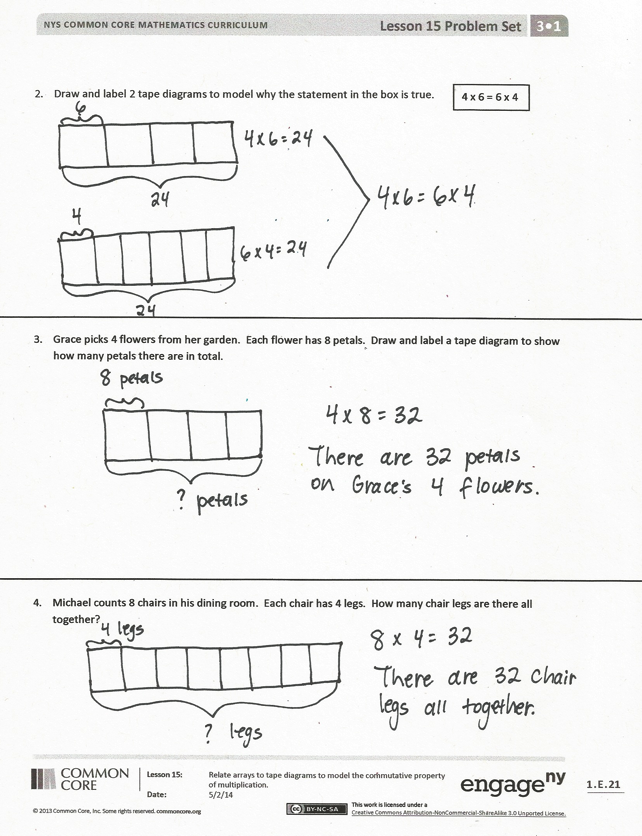 NYS COMMON CORE MATHEMATICS CURRICULUM
Lesson 15 Problem Set 3•1
2. Draw and label 2 tape diagrams to model why the statement in the box is true.
4 x 6 = 6 x 4
6
4 x 6 = 24
24
4 x 6 = 6 x 4
4
6 x 4 = 24
24
3. Grace picks 4 flowers from her garden. Each flower has 8 petals. Draw and label a tape diagram to show
how many petals there are in total.
8 petals
4 x 8 = 32
There are 32 petals
on Grace's 4 flowers.
? petals
4. Michael counts 8 chairs in his dining room. Each chair has 4 legs. How many chair legs are there all
together?
4 legs
8 x 4 = 32
There are 32 chair
legs all together.
? legs
COMMON
CORE
Lesson 15:
Relate arrays to tape diagrams to model the commutative property
of multiplication.
Date:
5/2/14
engage ny
1.E.21
© 2013 Common Core, Inc. Some rights reserved. commoncore.org
cc BY-NC-SA
This work is licensed under a
Creative Commons Attribution-NonCommercial-ShareAlike 3.0 Unported License.